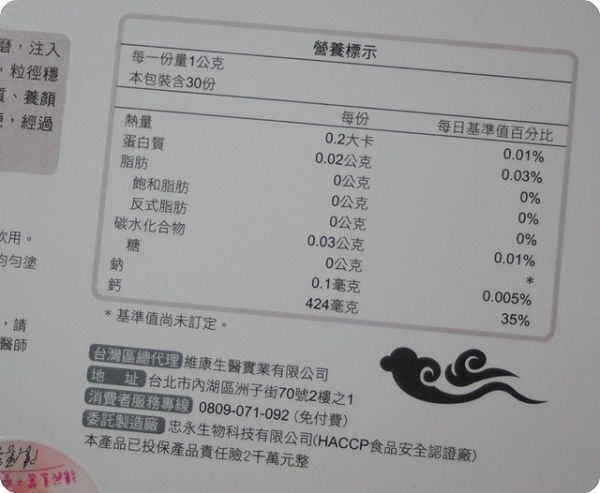 磨，注入
，粒徑穩
質、養顏
，經過
飲用。
均勻塗
，請
醫師
營養標示
每一份量1公克
本包裝含30份
每份 每日基準值百分比
熱量 0.2大卡 0.01%
蛋白質 0.02公克 0.03%
脂肪 0公克 0%
飽和脂肪 0公克 0%
反式脂肪 0公克 0%
碳水化合物 0.03公克 0.01%
糖 0公克 *
鈉 0.1毫克 0.005%
鈣 424毫克 35%
* 基準值尚未訂定。
台灣區總代理 維康生醫實業有限公司
地 址 台北市內湖區洲子街70號2樓之1
消費者服務專線 0809-071-092 (免付費)
委託製造廠 忠永生物科技有限公司(HACCP食品安全認證廠)
本產品已投保產品責任險2千萬元整